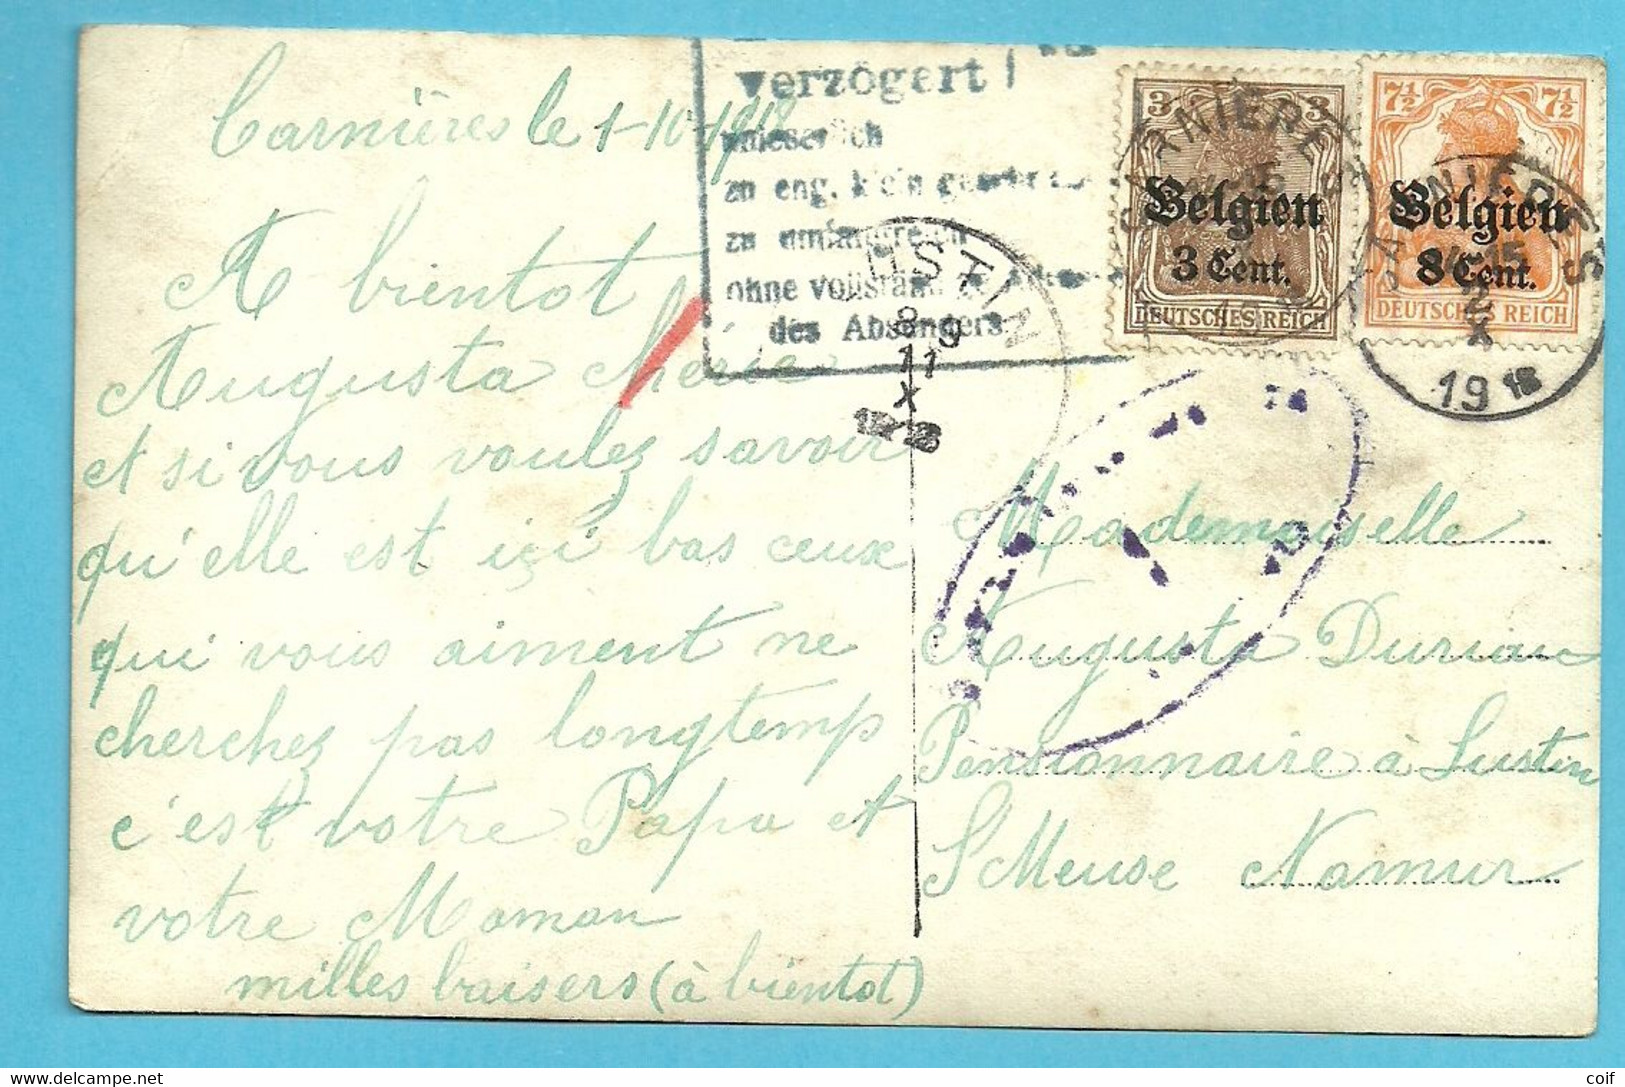 Carnières le 1-10-1918
A bientot
Augusta Chérie
et si vous voulez savoir
qu'elle est içi bas ceux
qui vous aiment ne
cherchez pas longtemp
c'est votre Papa et
votre Maman
milles baisers (à bientot)
verzögert!
unleserlich
zu eng, klein
zu umfangreich
ohne
des Absenders
LUSTIN
8-9
11
X
1918
3 3
Belgien
3 Cent.
DEUTSCHES REICH
7½ 7½
Belgien
8 Cent.
DEUTSCHES REICH
CARNIÈRES
CARNIERES
2
X
1918
Mademoiselle
Augusta Duriau
Pensionnaire à Lustin
S/Meuse Namur
coif